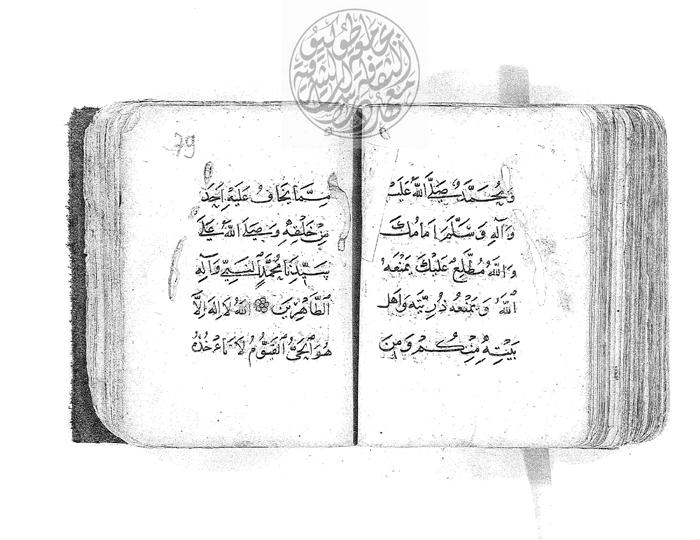 وَمُحَمَّدٌ صَلَّى اللهُ عَلَيْهِ
وَآلِهِ وَسَلَّمَ اَمَامُكَ
وَاللهُ مُطَّلِعٌ عَلَيْكَ يَمْنَعُهُ
اللهُ وَيَمْنَعُهُ ذُرِّيَّتَهُ وَاَهْلَ
بَيْتِهِ مِنْكُمْ وَمِنَ
79
مِمَّا يَخَافُ عَلَيْهِ اَحَدٌ
مِنْ خَلْقِهِ وَصَلَّى اللهُ عَلَى
سَيِّدِنَا مُحَمَّدٍ النَّبِيِّ وَآلِهِ
الطَّاهِرِينَ اللهُ لَا اِلٰهَ اِلَّا
هُوَ الْحَيُّ الْقَيُّومُ لَا تَاْخُذُهُ